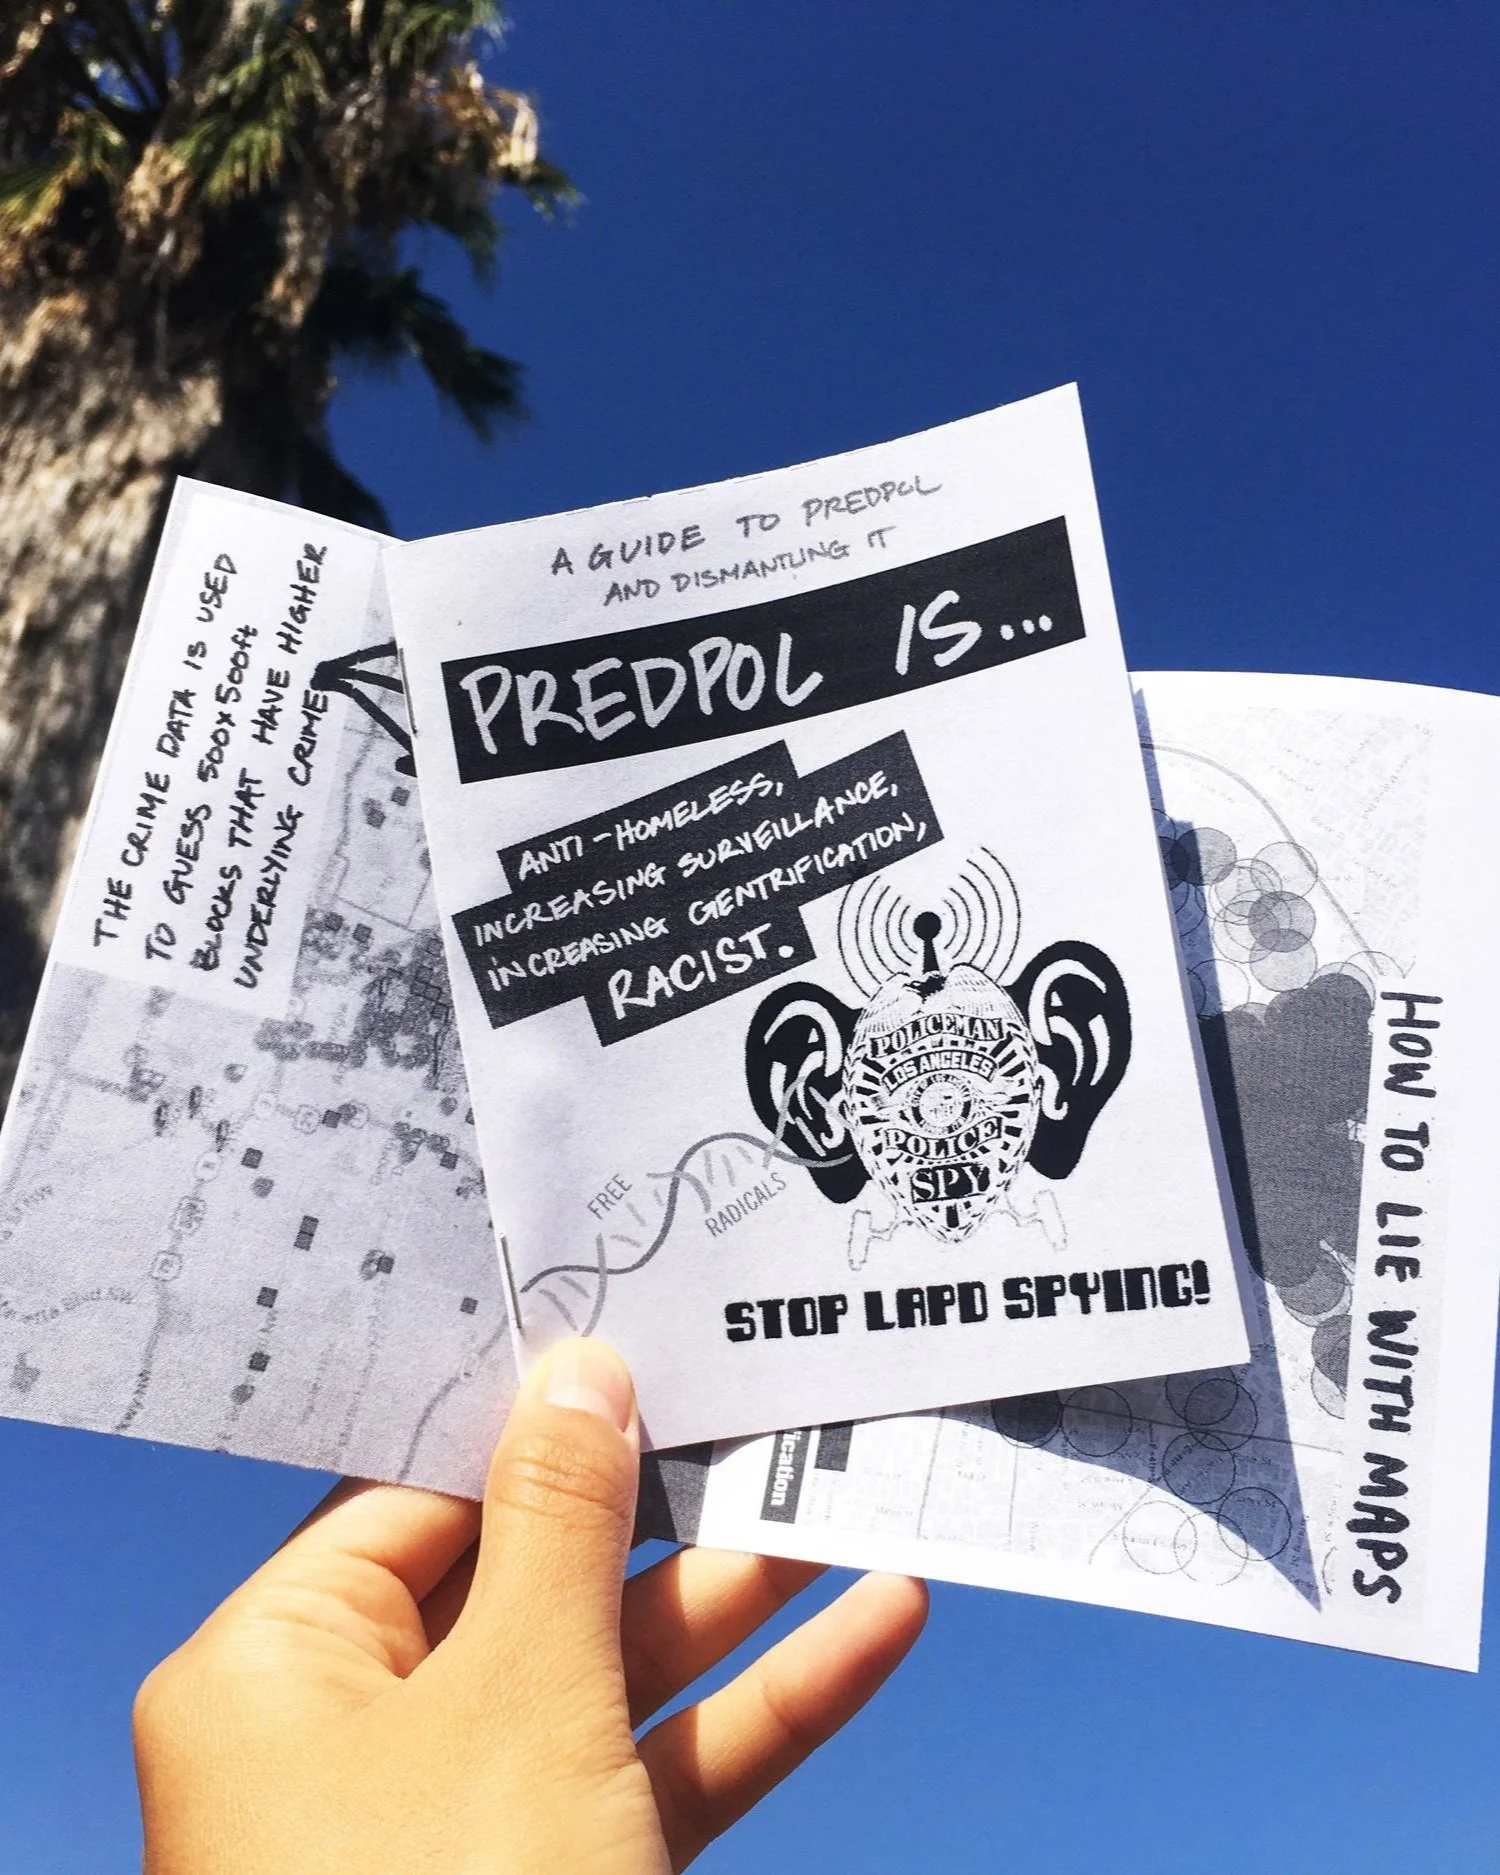 THE CRIME DATA IS USED
TO GUESS 500x500ft
BLOCKS THAT HAVE HIGHER
UNDERLYING CRIME
A GUIDE TO PREDPOL
AND DISMANTLING IT
PREDPOL IS...
ANTI-HOMELESS,
INCREASING SURVEILLANCE,
INCREASING GENTRIFICATION,
RACIST.
POLICEMAN
LOS ANGELES
POLICE
SPY
FREE
RADICALS
STOP LAPD SPYING!
HOW TO LIE WITH MAPS